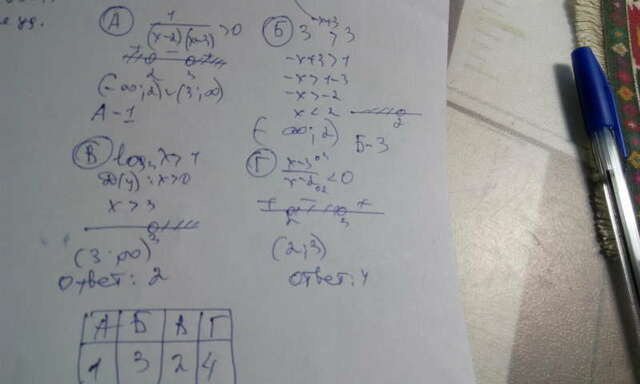 А 1/((x-2)(x-3)) > 0
+ - +
2 3
(-∞; 2) ∪ (3; ∞)
А-1
Б 3^(-x+3) > 3
-x+3 > 1
-x > 1-3
-x > -2
x < 2
2
(-∞; 2)
Б-3
В log₃ x > 1
D(y): x > 0
x > 3
3
(3; ∞)
ответ: 2
Г (x-3)/(x-2) < 0
+ - +
2 3
(2; 3)
ответ: 4
А Б В Г
1 3 2 4